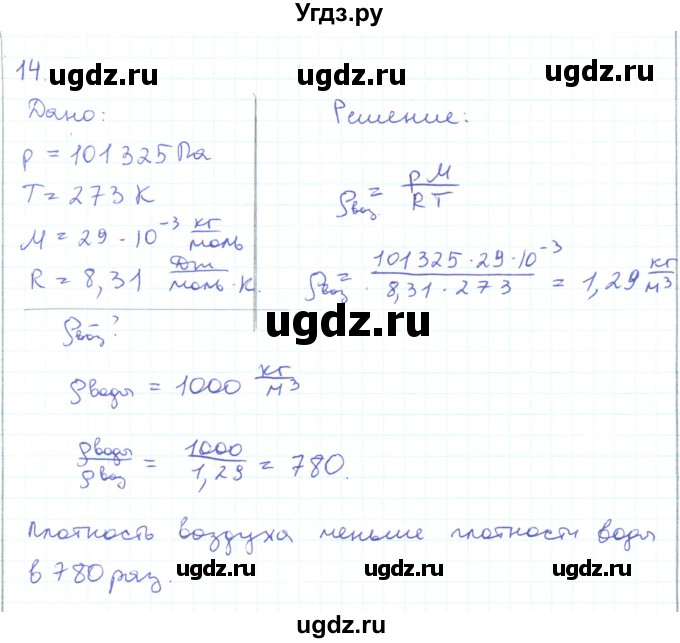 Угдз.ру
14.
ugdz.ru ugdz.ru ugdz.ru
Дано:
Решение:
p = 101 325 Па
T = 273 К
M = 29 · 10⁻³ кг/моль
R = 8,31 Дж/моль · К.
ρвоз - ?
ρвоз = pM/RT
ρвоз = 101 325 · 29 · 10⁻³/8,31 · 273 = 1,29 кг/м³
ugdz.ru ugdz.ru
ρводы = 1000 кг/м³
ρводы/ρвоз = 1000/1,29 = 780.
ugdz.ru ugdz.ru
Плотность воздуха меньше плотности воды
в 780 раз.
ugdz.ru ugdz.ru ugdz.ru
ugdz.ru ugdz.ru